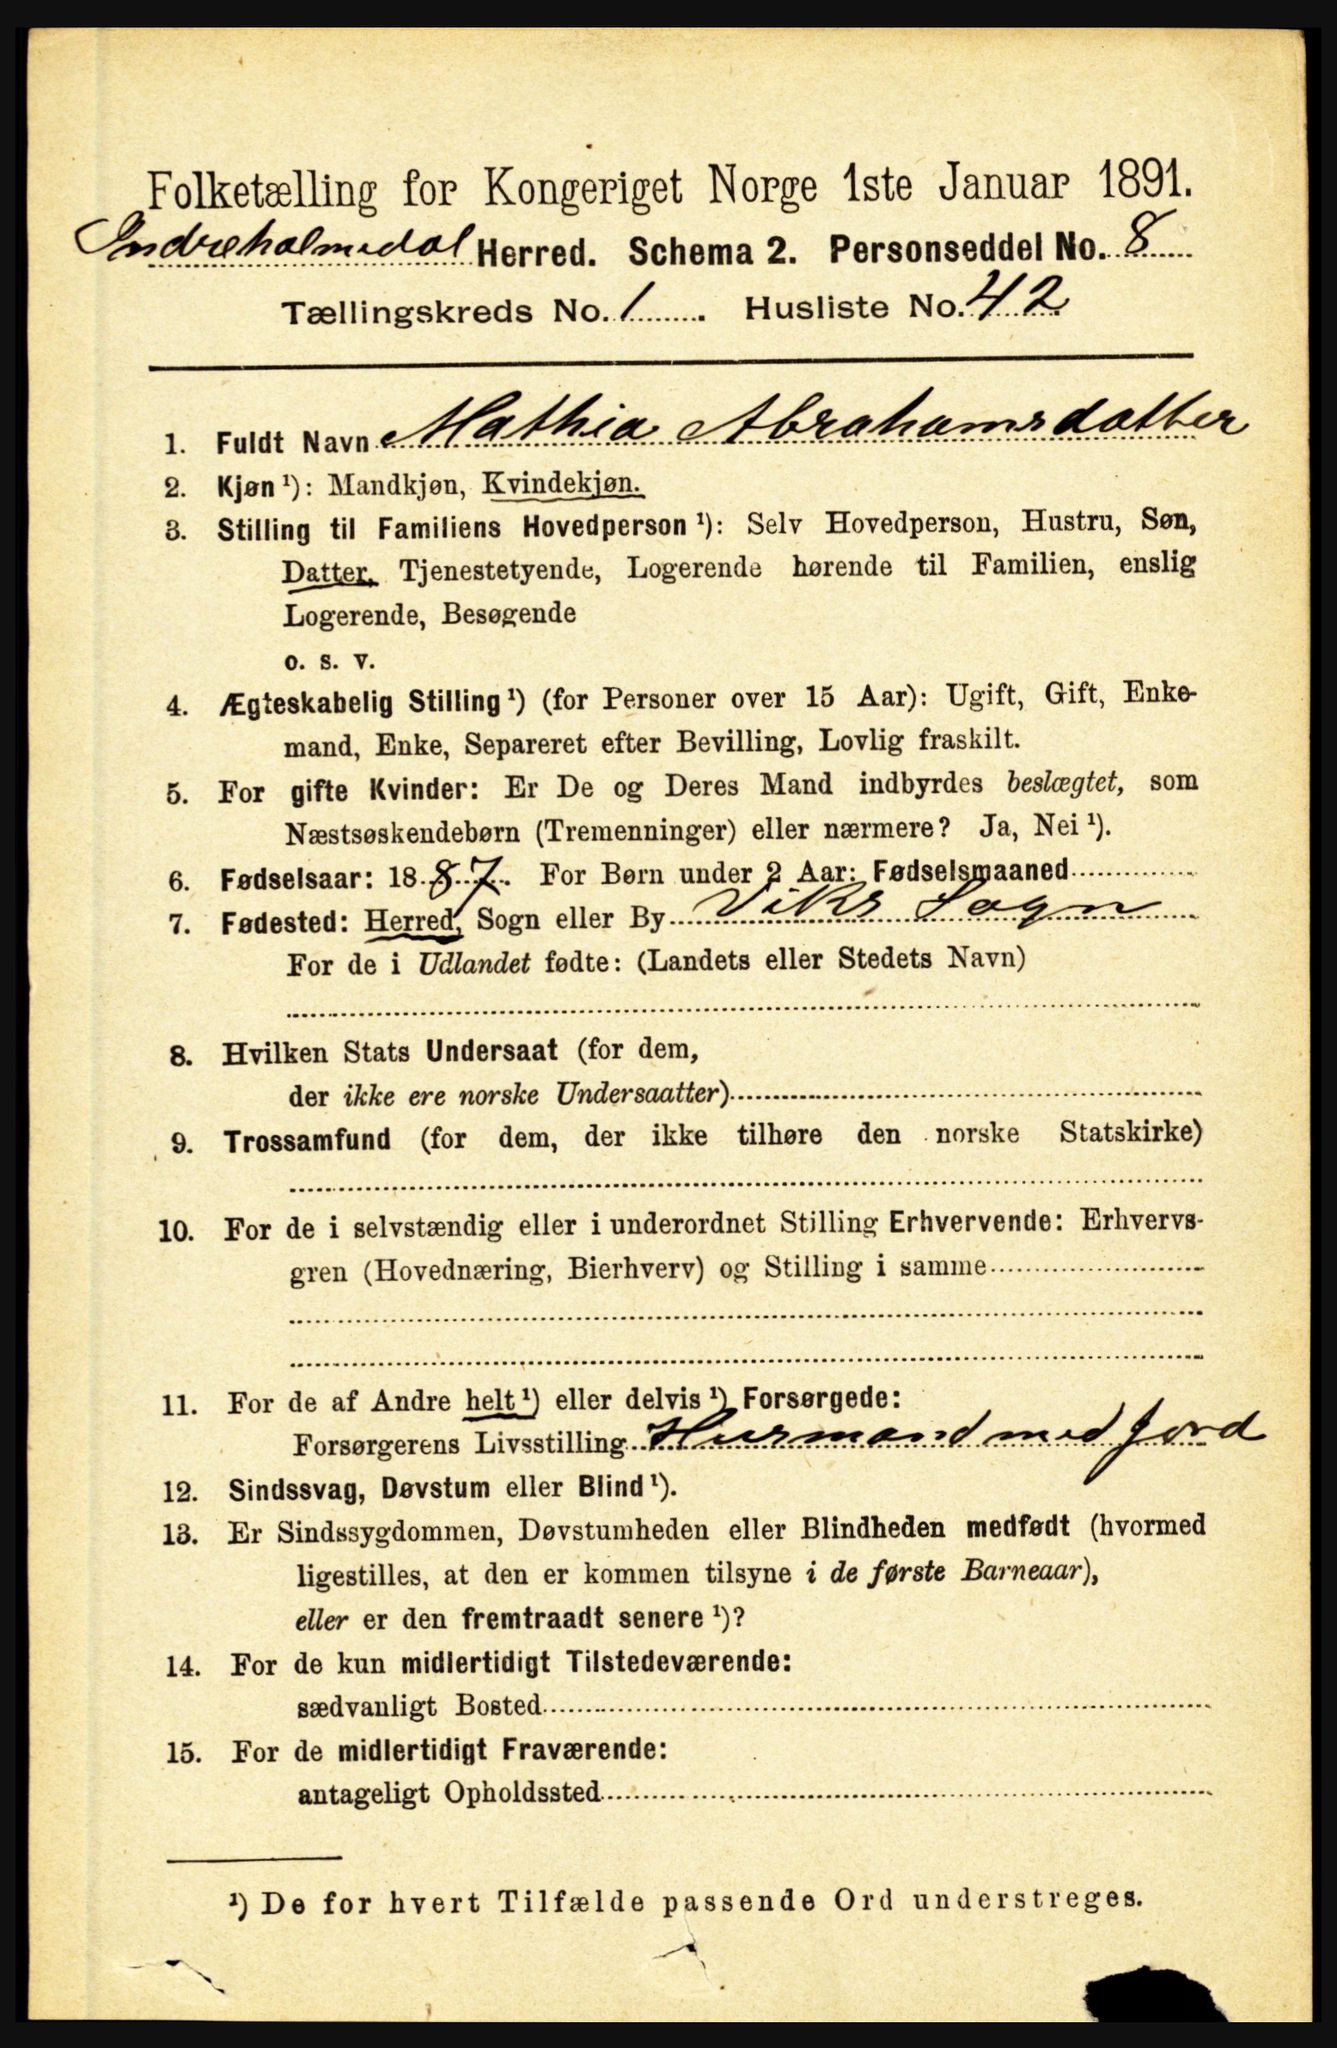 Folketælling for Kongeriget Norge 1ste Januar 1891.
Indreholmedal Herred. Schema 2. Personseddel No. 8
Tællingskreds No. 1. Husliste No. 42
1. Fuldt Navn Mathia Abrahamsdatter
2. Kjøn ¹): Mandkjøn, Kvindekjøn.
3. Stilling til Familiens Hovedperson ¹): Selv Hovedperson, Hustru, Søn,
Datter, Tjenestetyende, Logerende hørende til Familien, enslig
Logerende, Besøgende
o. s. v.
4. Ægteskabelig Stilling ¹) (for Personer over 15 Aar): Ugift, Gift, Enke-
mand, Enke, Separeret efter Bevilling, Lovlig fraskilt.
5. For gifte Kvinder: Er De og Deres Mand indbyrdes beslægtet, som
Næstsøskendebørn (Tremenninger) eller nærmere? Ja, Nei ¹).
6. Fødselsaar: 1887. For Børn under 2 Aar: Fødselsmaaned
7. Fødested: Herred, Sogn eller By Viks Sogn
For de i Udlandet fødte: (Landets eller Stedets Navn)
8. Hvilken Stats Undersaat (for dem,
der ikke ere norske Undersaatter)
9. Trossamfund (for dem, der ikke tilhøre den norske Statskirke)
10. For de i selvstændig eller i underordnet Stilling Erhvervende: Erhvervs-
gren (Hovednæring, Bierhverv) og Stilling i samme
11. For de af Andre helt ¹) eller delvis ¹) Forsørgede:
Forsørgerens Livsstilling Husmand med Jord
12. Sindssvag, Døvstum eller Blind ¹).
13. Er Sindssygdommen, Døvstumheden eller Blindheden medfødt (hvormed
ligestilles, at den er kommen tilsyne i de første Barneaar),
eller er den fremtraadt senere ¹)?
14. For de kun midlertidigt Tilstedeværende:
sædvanligt Bosted
15. For de midlertidigt Fraværende:
antageligt Opholdssted
¹) De for hvert Tilfælde passende Ord understreges.